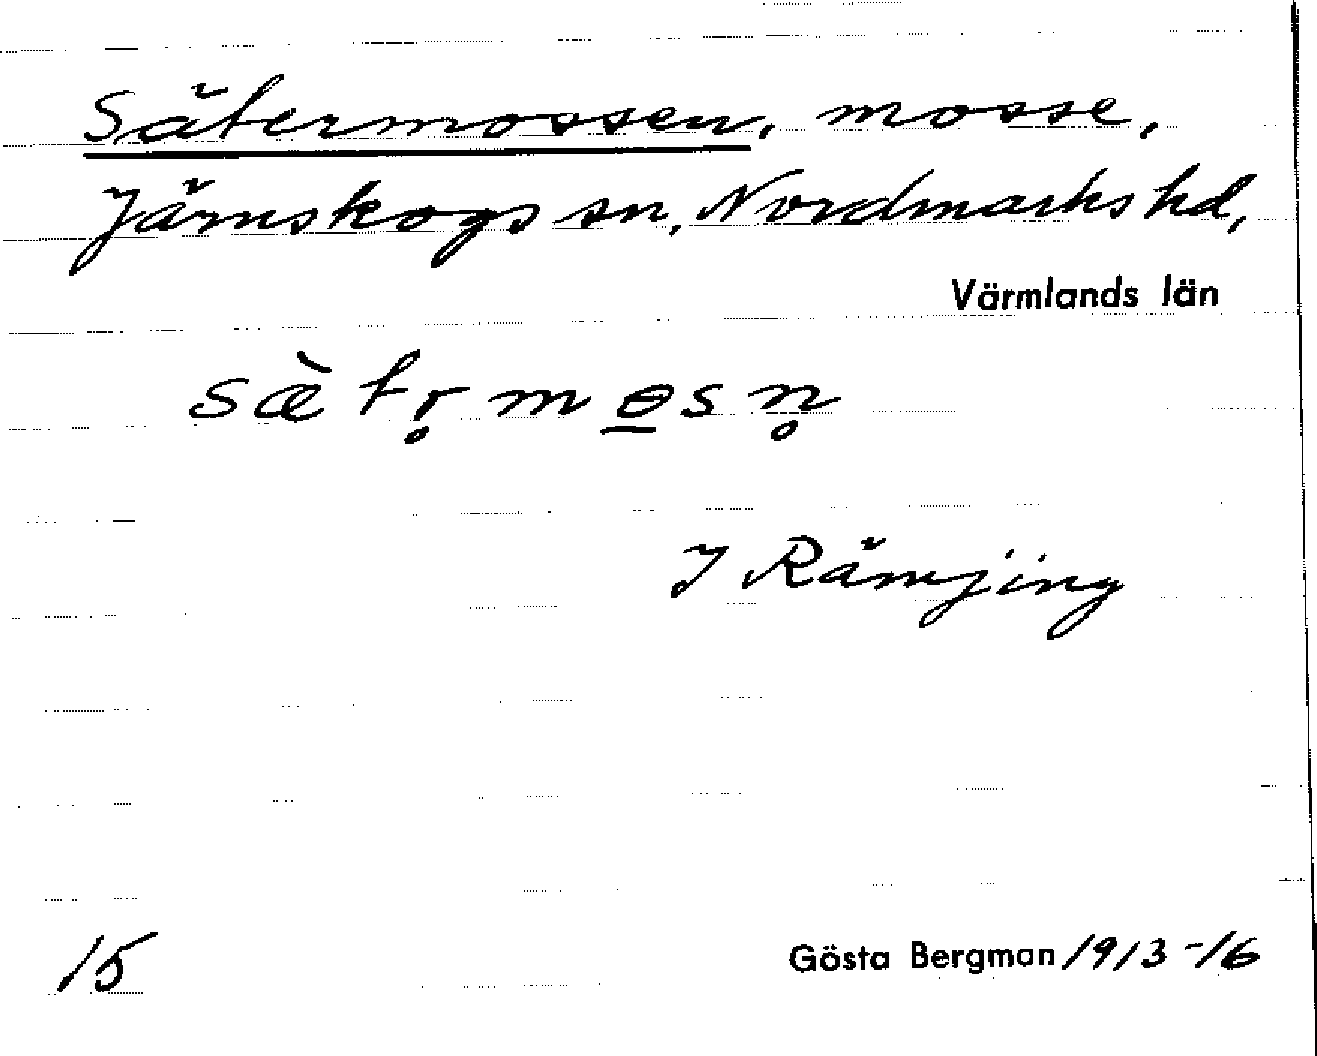 Sätermossen, mosse,
Järnskogs sn, Nordmarks hd,
Värmlands län
sæ̀tr̥mɵ̲sn̥
I Rämjing
15
Gösta Bergman 1913-16